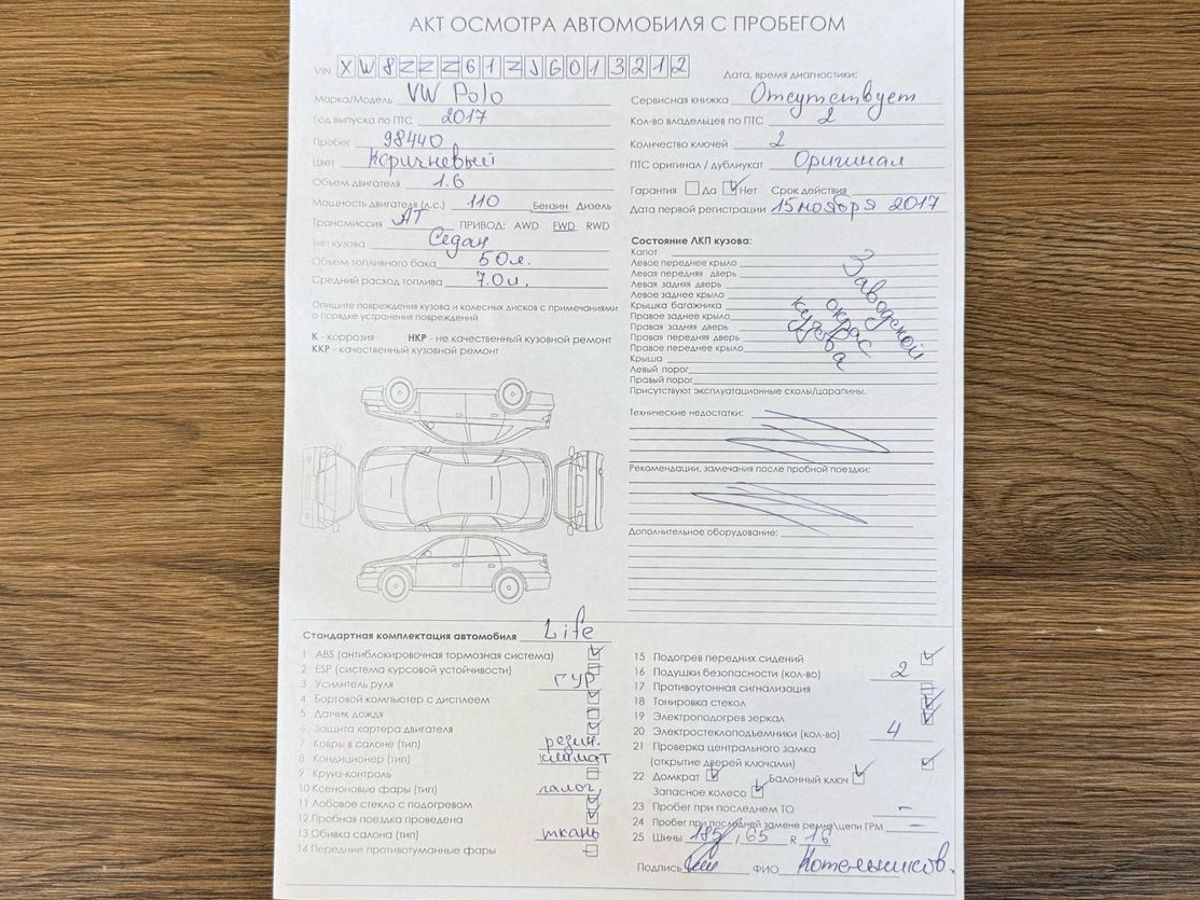 АКТ ОСМОТРА АВТОМОБИЛЯ С ПРОБЕГОМ
VIN XW8ZZZ61ZJG013212
Дата, время диагностики:
Марка/Модель VW Polo
Год выпуска по ПТС 2017
Пробег 98440
Цвет Коричневый
Объем двигателя 1.6
Мощность двигателя (л.с.) 110 Бензин Дизель
Трансмиссия АТ ПРИВОД: AWD FWD RWD
Тип кузова Седан
Объем топливного бака 50л.
Средний расход топлива 7.0л.
Опишите повреждения кузова и колесных дисков с примечаниями
о порядке устранения повреждений
К - коррозия НКР - не качественный кузовной ремонт
ККР - качественный кузовной ремонт
Сервисная книжка Отсутствует
Кол-во владельцев по ПТС 2
Количество ключей 2
ПТС оригинал / дубликат Оригинал
Гарантия Да Нет Срок действия
Дата первой регистрации 15 ноября 2017
Состояние ЛКП кузова:
Капот
Левое переднее крыло
Левая передняя дверь
Левая задняя дверь
Левое заднее крыло
Крышка багажника
Правое заднее крыло
Правая задняя дверь
Правая передняя дверь
Правое переднее крыло
Крыша
Левый порог
Правый порог
Заводской
окрас
кузова
Присутствуют эксплуатационные сколы/царапины.
Технические недостатки:
Рекомендации, замечания после пробной поездки:
Дополнительное оборудование:
Стандартная комплектация автомобиля Life
1 ABS (антиблокировочная тормозная система)
2 ESP (система курсовой устойчивости)
3 Усилитель руля ГУР
4 Бортовой компьютер с дисплеем
5 Датчик дождя
6 Защита картера двигателя
7 Ковры в салоне (тип) резин.
8 Кондиционер (тип) климат
9 Круиз-контроль
10 Ксеноновые фары (тип) галог.
11 Лобовое стекло с подогревом
12 Пробная поездка проведена
13 Обивка салона (тип) ткань
14 Передние противотуманные фары
15 Подогрев передних сидений
16 Подушки безопасности (кол-во) 2
17 Противоугонная сигнализация
18 Тонировка стекол
19 Электроподогрев зеркал
20 Электростеклоподъемники (кол-во) 4
21 Проверка центрального замка
(открытие дверей ключами)
22 Домкрат Балонный ключ
Запасное колесо
23 Пробег при последнем ТО –
24 Пробег при последней замене ремня/цепи ГРМ –
25 Шины 185 / 65 R 16
Подпись ФИО Котельников.